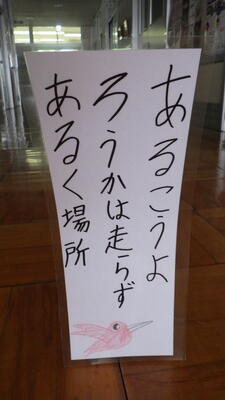 あるこうよ
ろうかは走らず
あるく場所